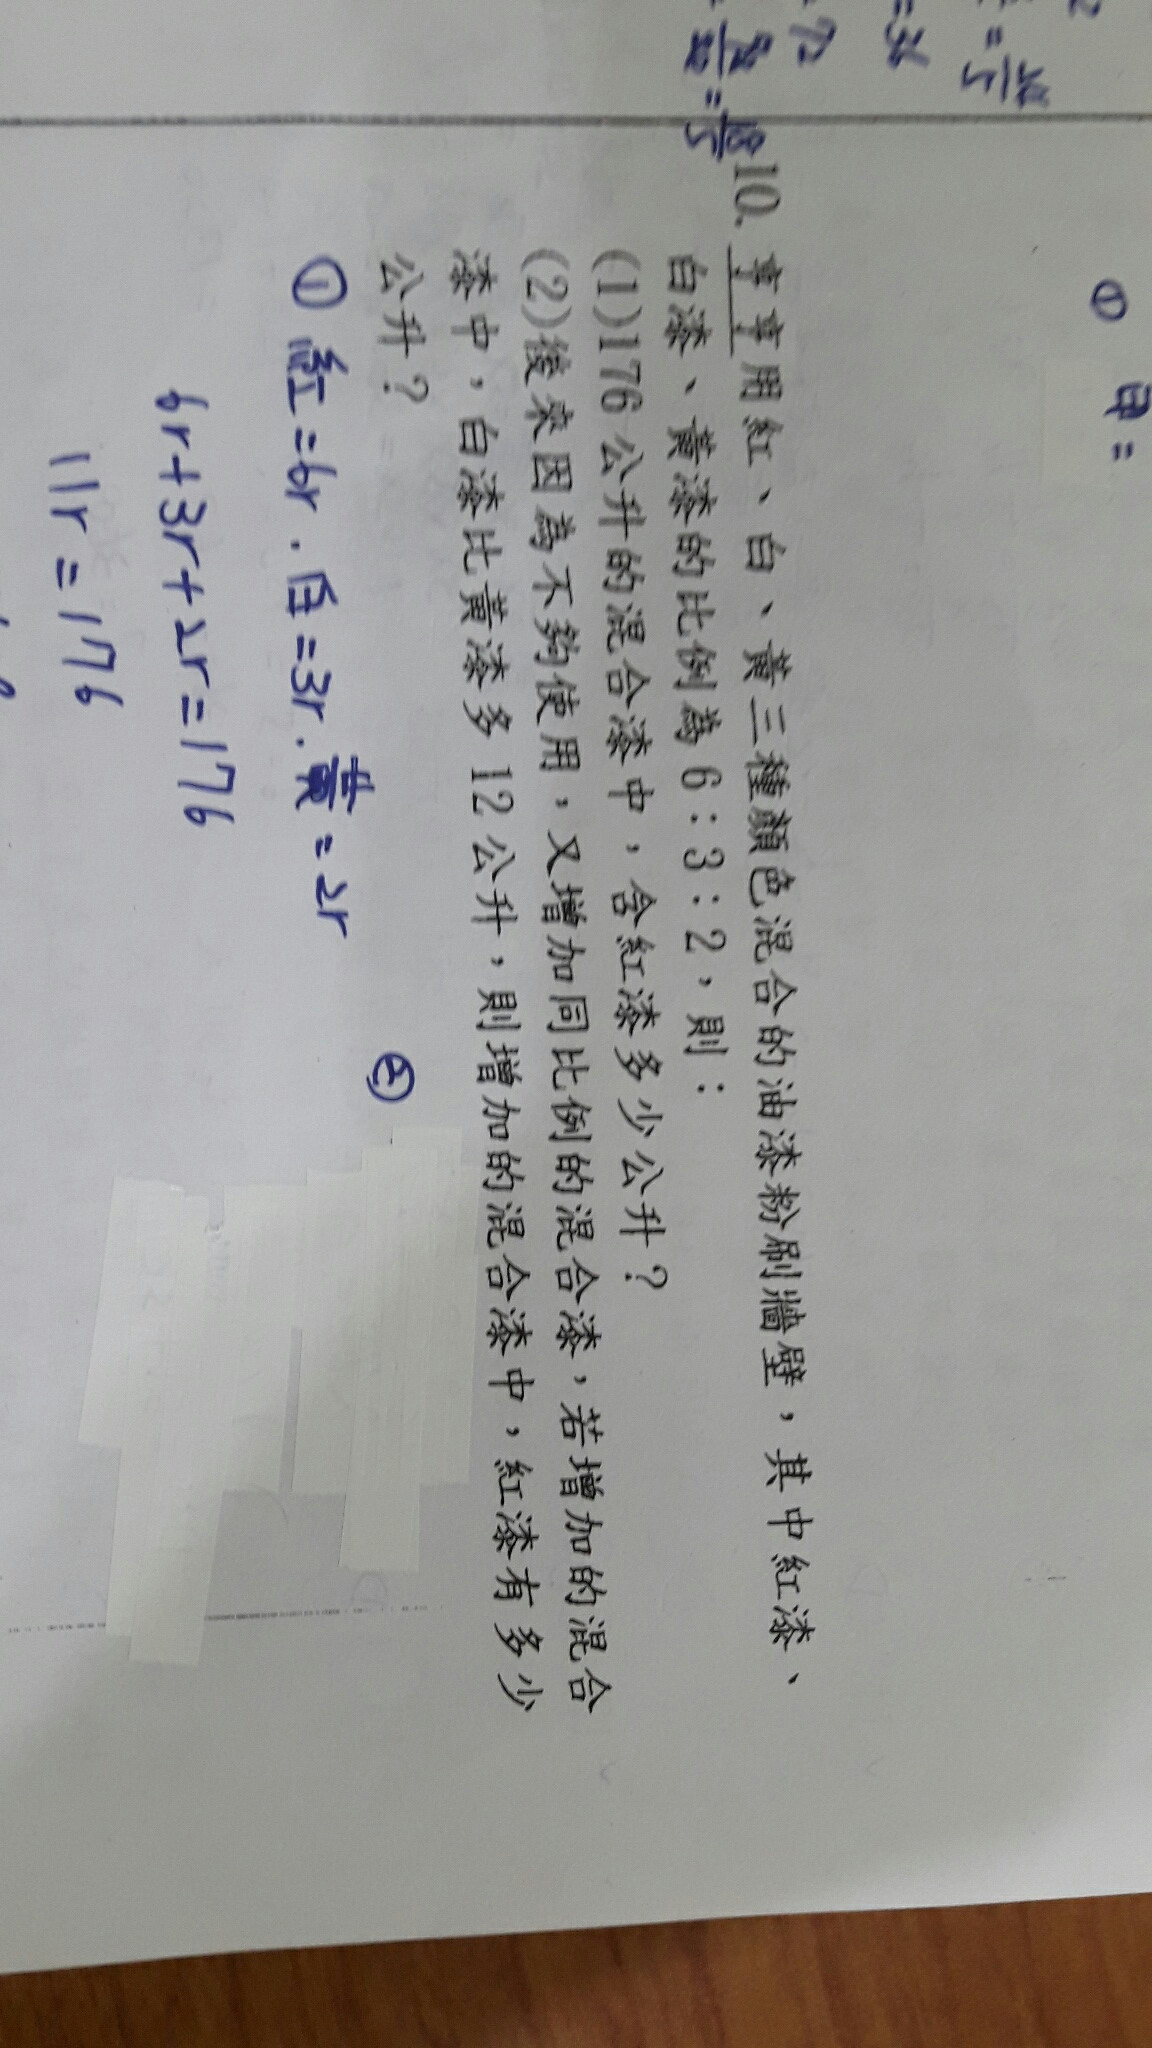 ① 甲=
10. 享享用紅、白、黃三種顏色混合的油漆粉刷牆壁，其中紅漆、
白漆、黃漆的比例為6:3:2，則：
(1)176公升的混合漆中，含紅漆多少公升？
(2)後來因為不夠使用，又增加同比例的混合漆，若增加的混合
漆中，白漆比黃漆多12公升，則增加的混合漆中，紅漆有多少
公升？
① 紅=6r．白=3r．黃=2r
6r+3r+2r=176
11r=176
②
=36